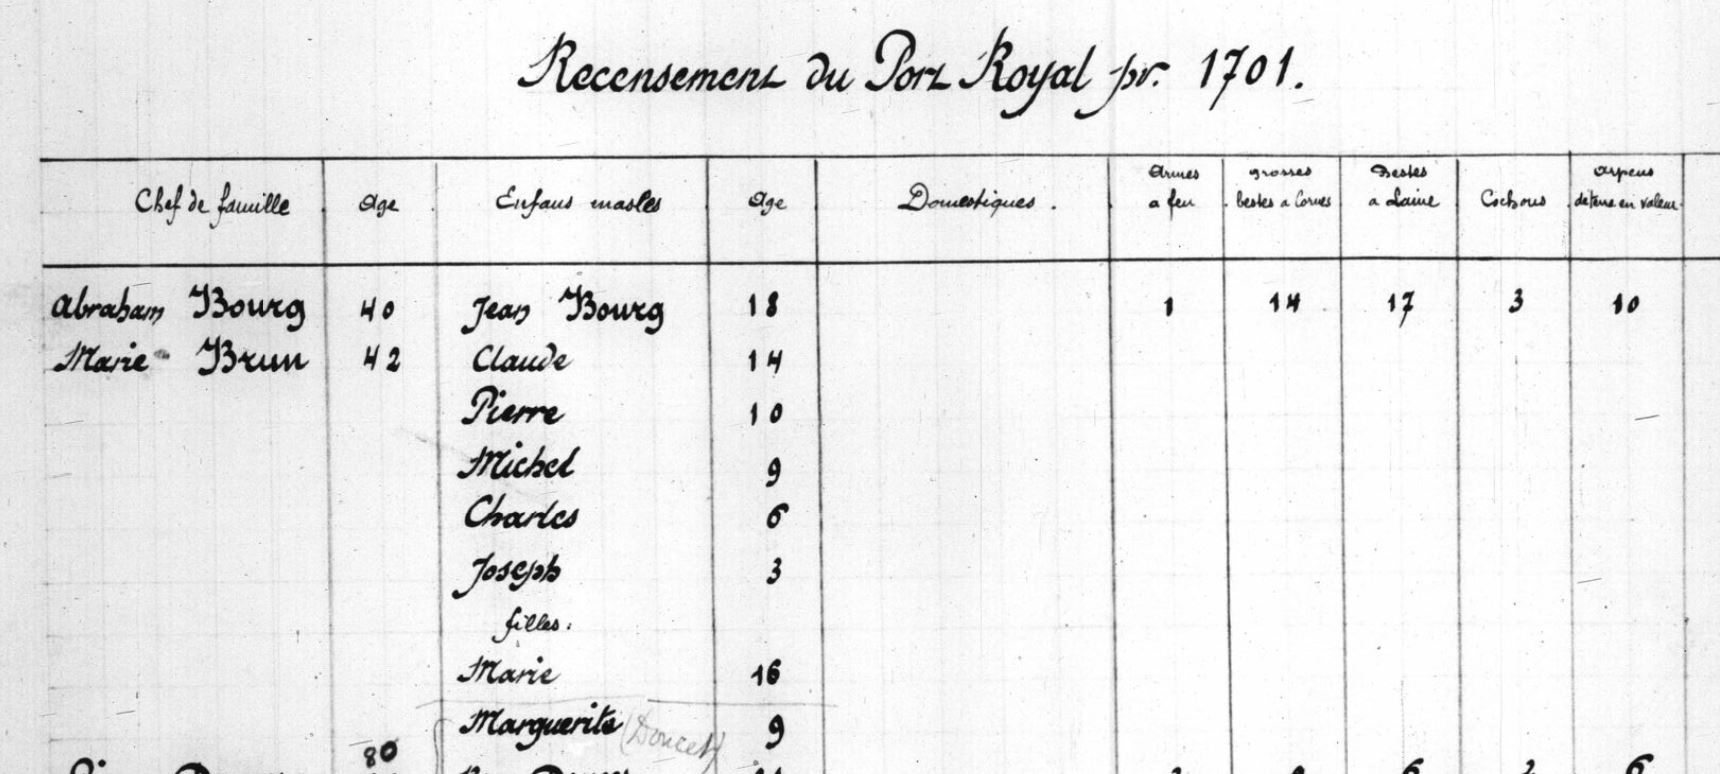 Recensement du Port Royal pr. 1701.
Chef de famille Age Enfans masles Age Domestiques . Armes a feu grosses bestes a Cornes Bestes a Laine Cochons arpens de terre en valeur
Abraham Bourg 40 Jean Bourg 18 1 14 17 3 10
Marie Brun 42 Claude 14
Pierre 10
Michel 9
Charles 6
Joseph 3
filles.
Marie 16
Marguerite (Doucet) 9
80